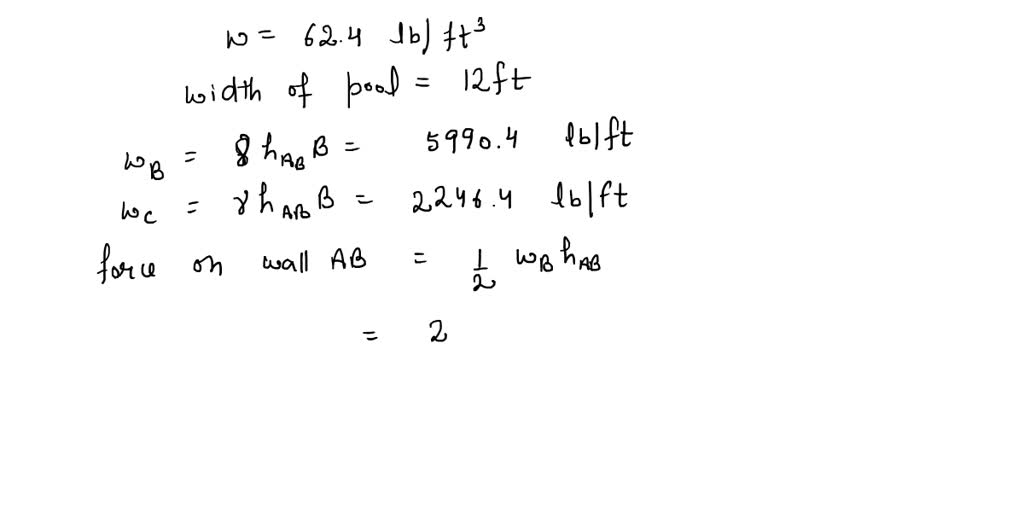 w = 62.4 lb/ft³
width of pool = 12ft
w_B = γ h_AB B = 5990.4 lb/ft
w_C = γ h_AB B = 2246.4 lb/ft
force on wall AB = 1/2 w_B h_AB
= 2